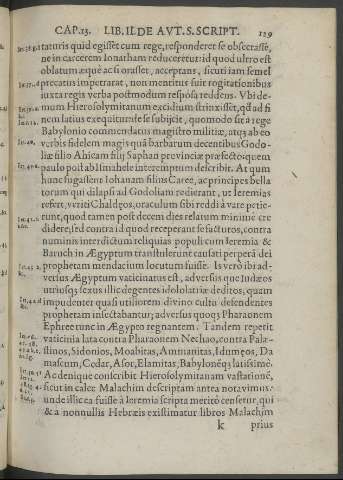 CAP.13. LIB. II. DE AVT. S. SCRIPT. 129
taturis quid egisset cum rege, responderet se obsecrasse,
ne in carcerem Ionatham reduceretur: id quod ultro est
oblatum æque ac si orasset, acceptans, sicuti iam semel
precatus impetrarat, non mentitus fuit rogitationibus
iuxta regis verba postmodum resposa reddens. Vbi de-
mum Hierosolymitanum excidium strinxisset, qd ad fi
nem latius exequitur: ipse se subijcit, quomodo sit à rege
Babylonio commendatus magistro militiæ, atqs ab eo
verbis fidelem magis quã barbarum decentibus Godo-
liæ filio Ahicam filij Saphan provinciæ præfecto: quem
paulo post ab Ismahele interemptum describit. At qum
hunc fugassent Iohanam filius Caree, ac principes bella
torum qui dilapsi ad Godoliam redierant, ut Ieremias
refert, veriti Chaldęos, oraculum sibi reddi à vate petie-
runt, quod tamen post decem dies relatum minime cre
didere, sed contra id quod receperant se facturos, contra
numinis interdictum reliquias populi cum Ieremia &
Baruch in Ægyptum transtulerunt causati perperã dei
prophetam mendacium locutum fuisse. Is verò ibi ad-
versus Ægyptum vaticinatus est, adversiis que Iudæos
utriusqs sexus illic degentes idololatriæ deditos, quam
impudenter quasi utiliorem divino cultu defendentes
prophetam insectabantur; adversus quoqs Pharaonem
Ephree tunc in Ægypto regnantem. Tandem repetit
vaticinia lata contra Pharaonem Nechao, contra Palæ-
stinos, Sidonios, Moabitas, Ammanitas, Idumęos, Da
mascum, Cedar, Asor, Elamitas, Babylonéqs latissimè.
Ac denique conscribit Hierosolymitanam vastationé,
sicut in calce Malachim descriptam antea notavimus.
unde illic ea fuisse à Ieremia scripta meritò censetur, qui
& à nonnullis Hebræis existimatur libros Malachim
k prius